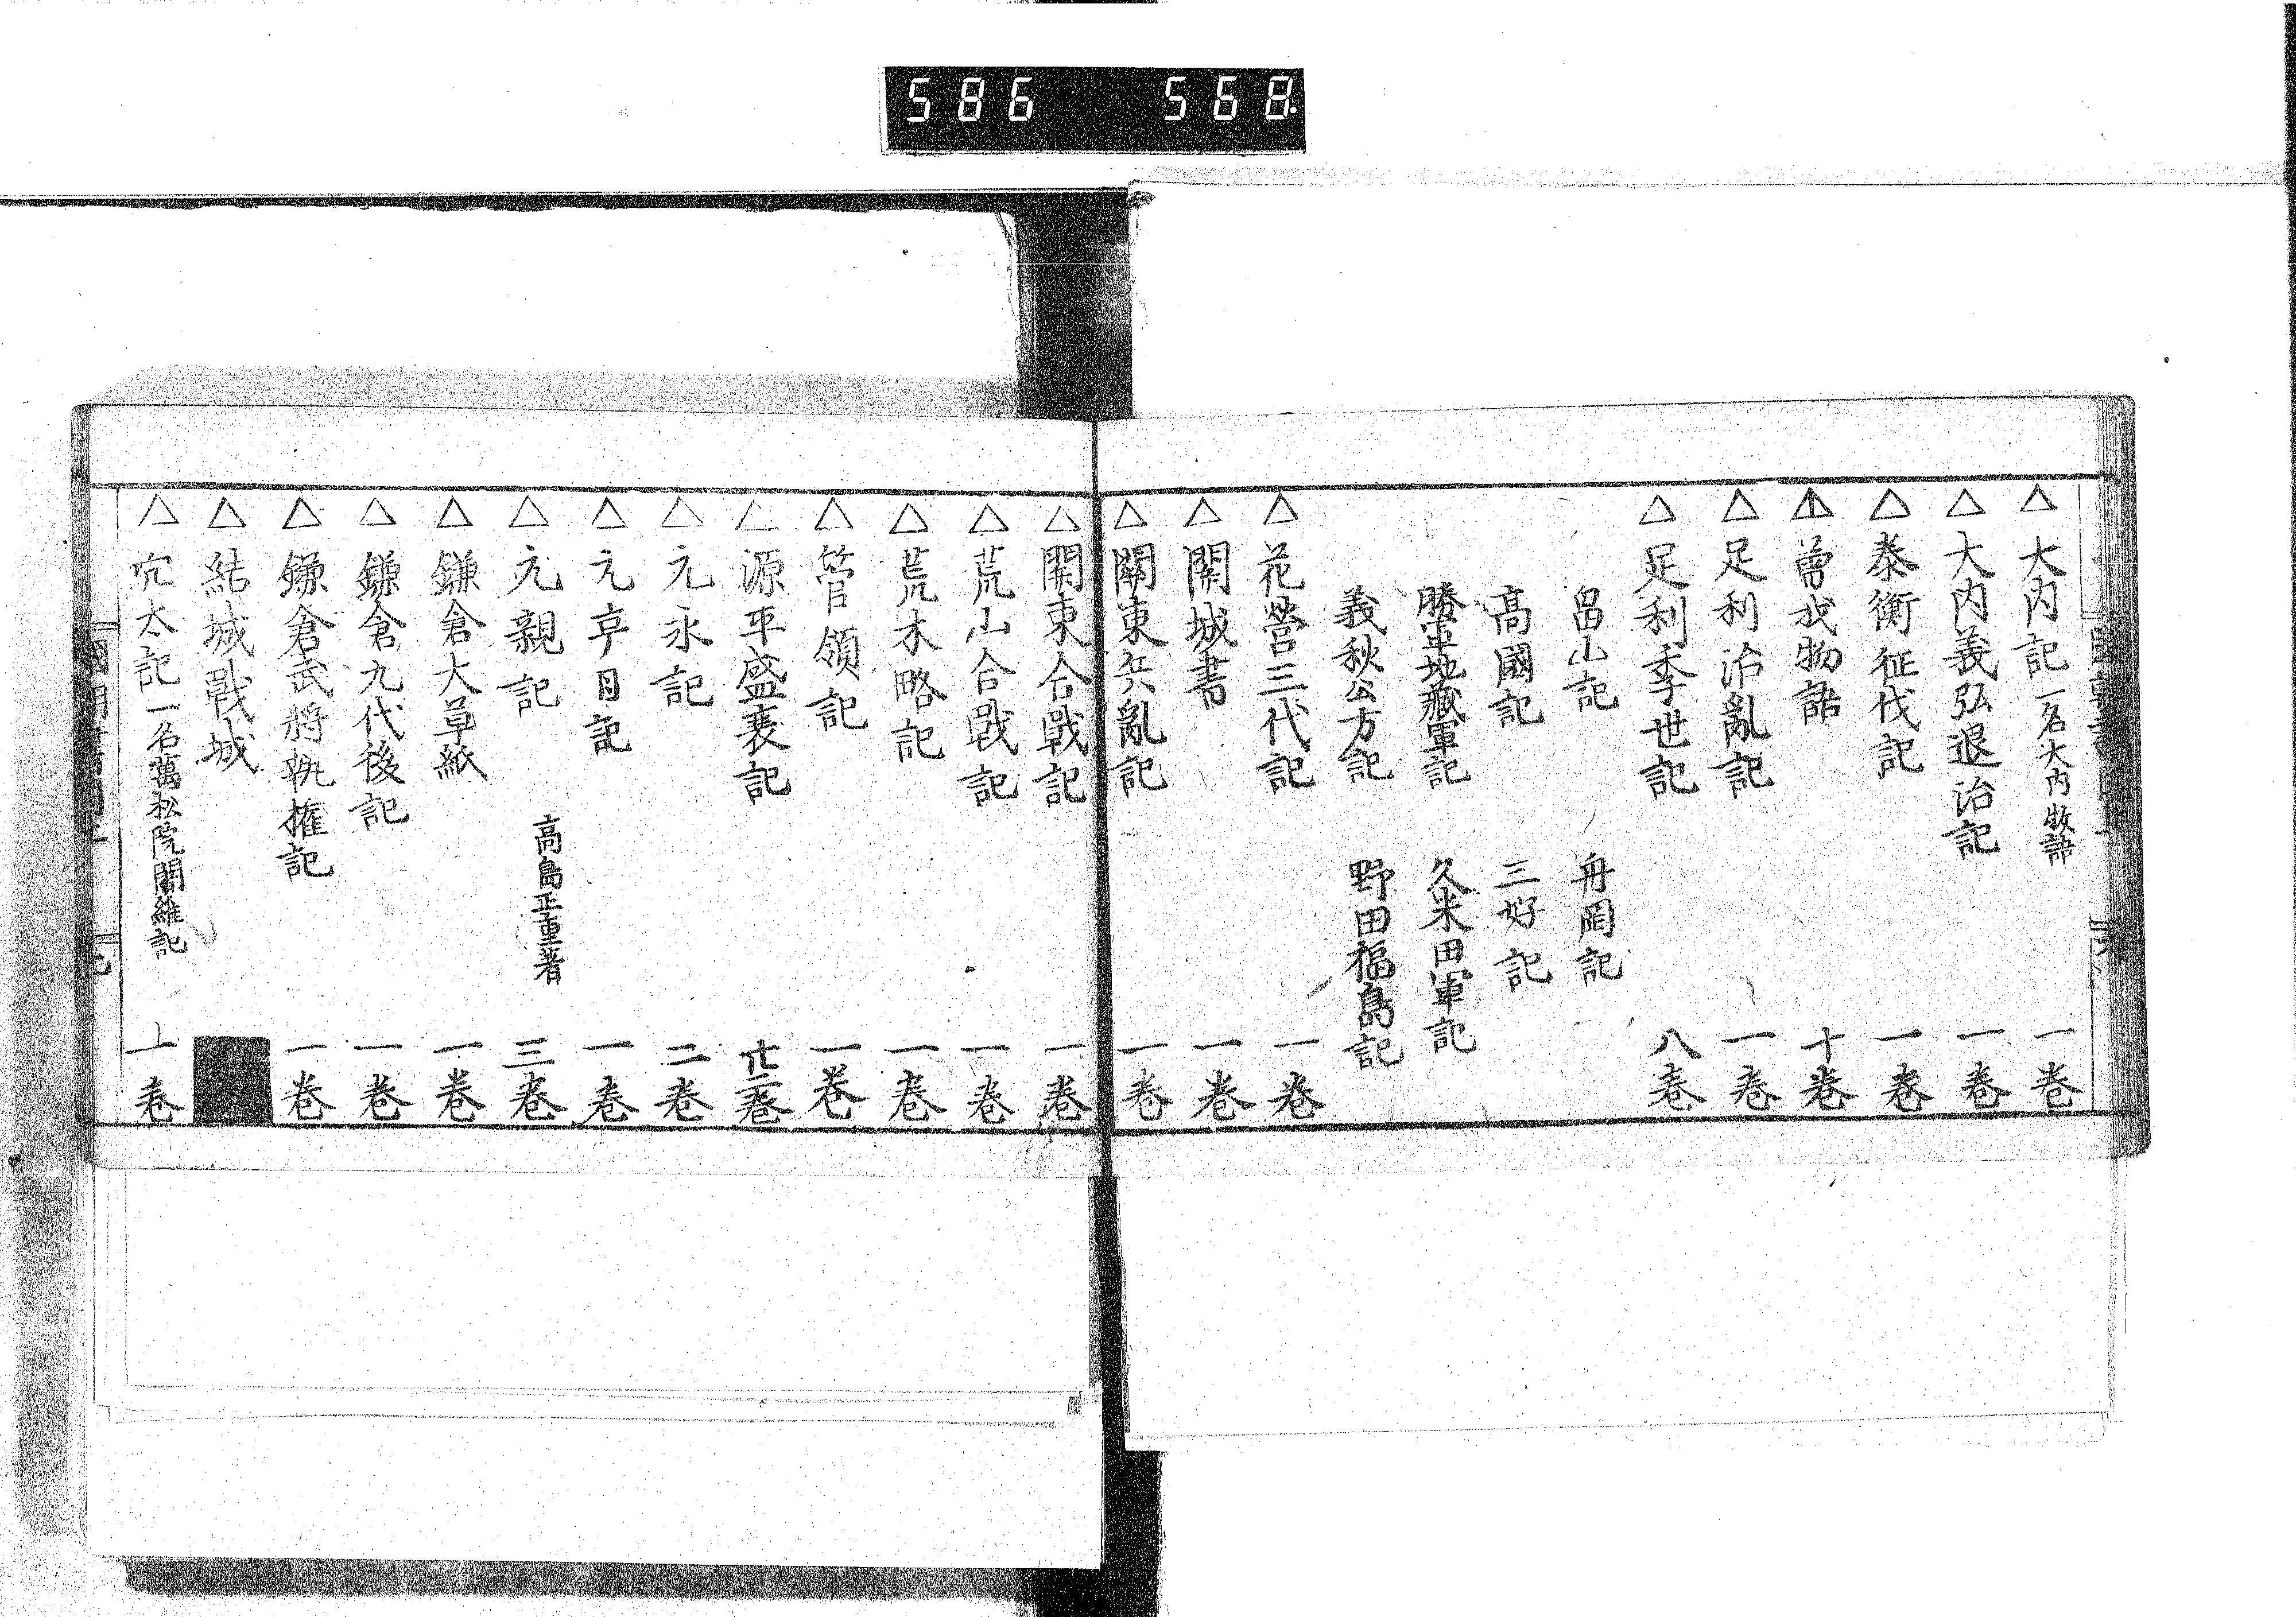 586 568
△大内記 一名大内牧語 一巻
△大内義弘退治記 一巻
△泰衡征伐記 一巻
△曽我物語 十巻
△足利治亂記 一巻
△足利季世記 八巻
畠山記 舟岡記
高國記 三好記
勝軍地藏軍記 久米田軍記
義秋公方記 野田福島記
△花營三代記 一巻
△關城書 一巻
△關東兵亂記 一巻
△關東合戰記 一巻
△荒山合戰記 一巻
△荒木略記 一巻
△管領記 一巻
△源平盛衰記
△元永記 二巻
△元亨日記 一巻
△元親記 高島正重著 三巻
△鎌倉大草紙 一巻
△鎌倉九代後記 一巻
△鎌倉武將執權記 一巻
△結城戰城
△穴太記 一名萬松院闍維記 一巻